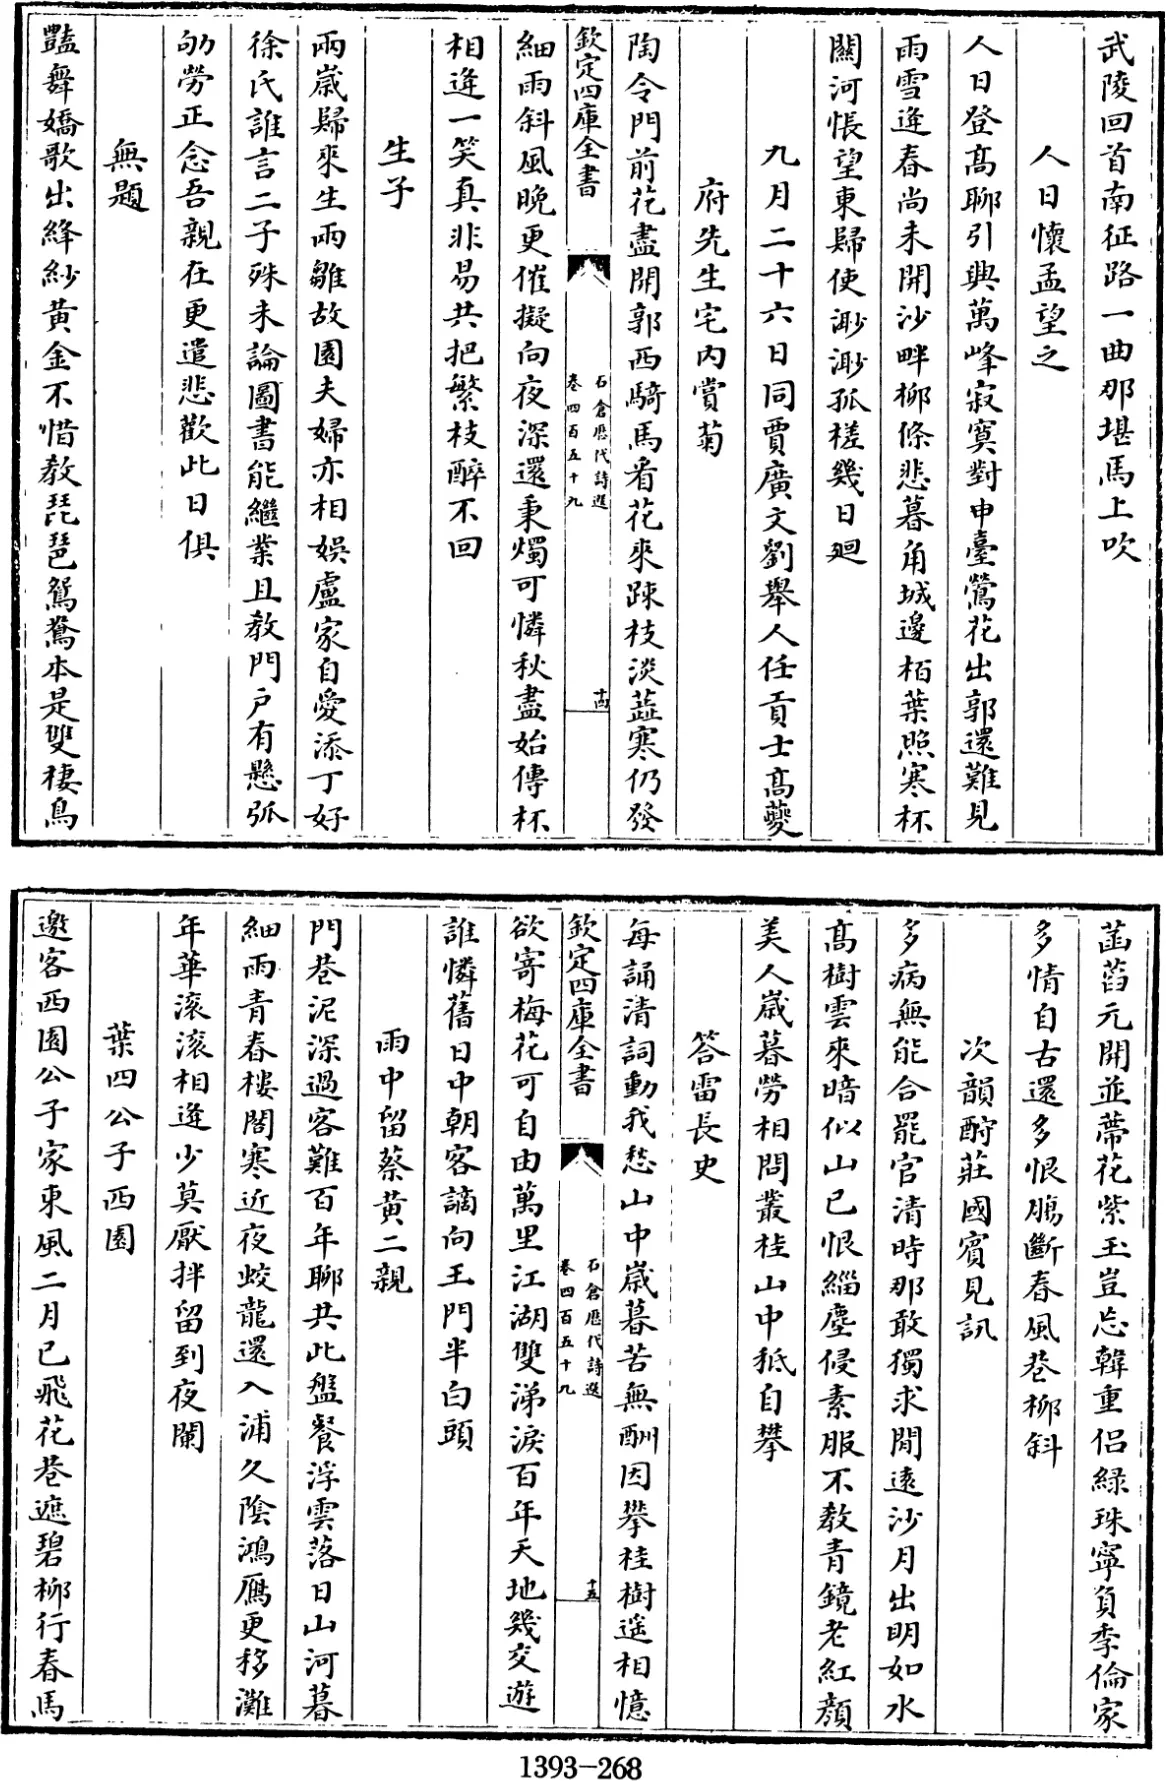 武陵回首南征路一曲那堪馬上吹
人日懷孟望之
人日登髙聊引興萬峰寂寞對申臺鶯花出郭還難見
雨雪逢春尚未開沙畔柳條悲暮角城邊栢葉照寒杯
關河悵望東歸使渺渺孤槎幾日廻
九月二十六日同賈廣文劉舉人任貢士髙夔
府先生宅内賞菊
陶令門前花盡開郭西騎馬看花來踈枝淡蘂寒仍發
欽定四庫全書
石倉歷代詩選
卷四百五十九
十四
細雨斜風晩更催擬向夜深還秉燭可憐秋盡始傳杯
相逢一笑真非易共把繁枝醉不回
生子
兩嵗歸來生兩雛故園夫婦亦相娯盧家自愛添丁好
徐氏誰言二子殊未論圖書能繼業且教門户有懸弧
劬勞正念吾親在更遣悲歡此日俱
無題
豔舞嬌歌出絳紗黄金不惜教琵琶鴛鴦本是雙棲鳥
菡萏元開並蒂花紫玉豈忘韓重侣緑珠寧負季倫家
多情自古還多恨膓斷春風巷柳斜
次韻酧莊國賓見訊
多病無能合罷官清時那敢獨求閒遠沙月出明如水
髙樹雲來暗似山已恨緇塵侵素服不教青鏡老紅顔
美人嵗暮勞相問叢桂山中秪自攀
答雷長史
每誦清詞動我愁山中嵗暮苦無酬因攀桂樹遥相憶
欽定四庫全書
石倉歷代詩選
卷四百五十九
十五
欲寄梅花可自由萬里江湖雙涕淚百年天地幾交遊
誰憐舊日中朝客謫向王門半白頭
雨中留蔡黄二親
門巷泥深過客難百年聊共此盤餐浮雲落日山河暮
細雨青春樓閣寒近夜蛟龍還入浦久隂鴻鴈更移灘
年華滚滚相逢少莫厭拌留到夜闌
葉四公子西園
邀客西園公子家東風二月已飛花巷遮碧柳行春馬
1393-268